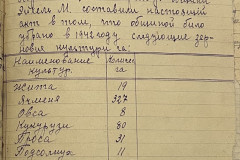 Янкель М. составили настоящий
акт в том, что общиной было
убрано в 1942 году следующие зер
новые культури га:
Наименование культур. Количес. га
Жита 19
Ячменя 327
Овса 8
Кукурузи 80
Проса 31
Подсолнуха 11